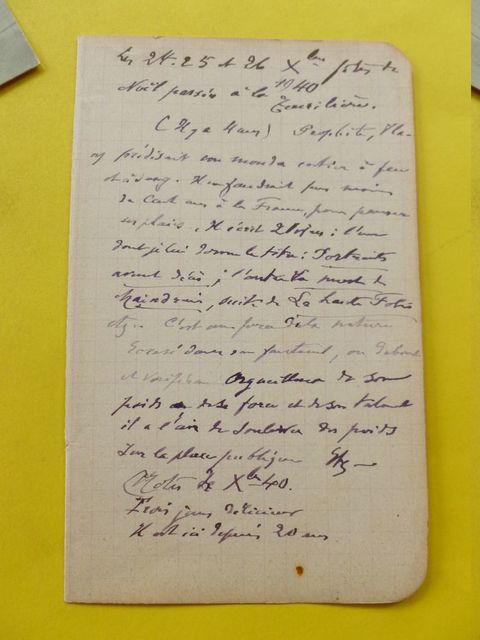 Les 24-25 et 26 Xbre fêtes de
1940
Noël passés à la
Tourilière.
(Il y a 4 ans) Prophète, Vla-
my prédisant un monde entier à feu
et à sang. Il ne faudrait pas moins
de Cent ans à la France, pour panser
ses plaies. Il écrit 2 livres : l'un
dont j'ai donné le titre : Portraits
avant décès ; l'autre la mort de
, suite de La haute Folie
Etz - C'est une force de la nature
Ecrasé dans un fauteuil, ou debout
et Orgueilleux de son
poids de sa force et de son talent
il a l'air de soulever des poids
sur la place publique Etz -
(Notes de Xbre 40.
Trois jours délicieux
Il est ici depuis 20 ans